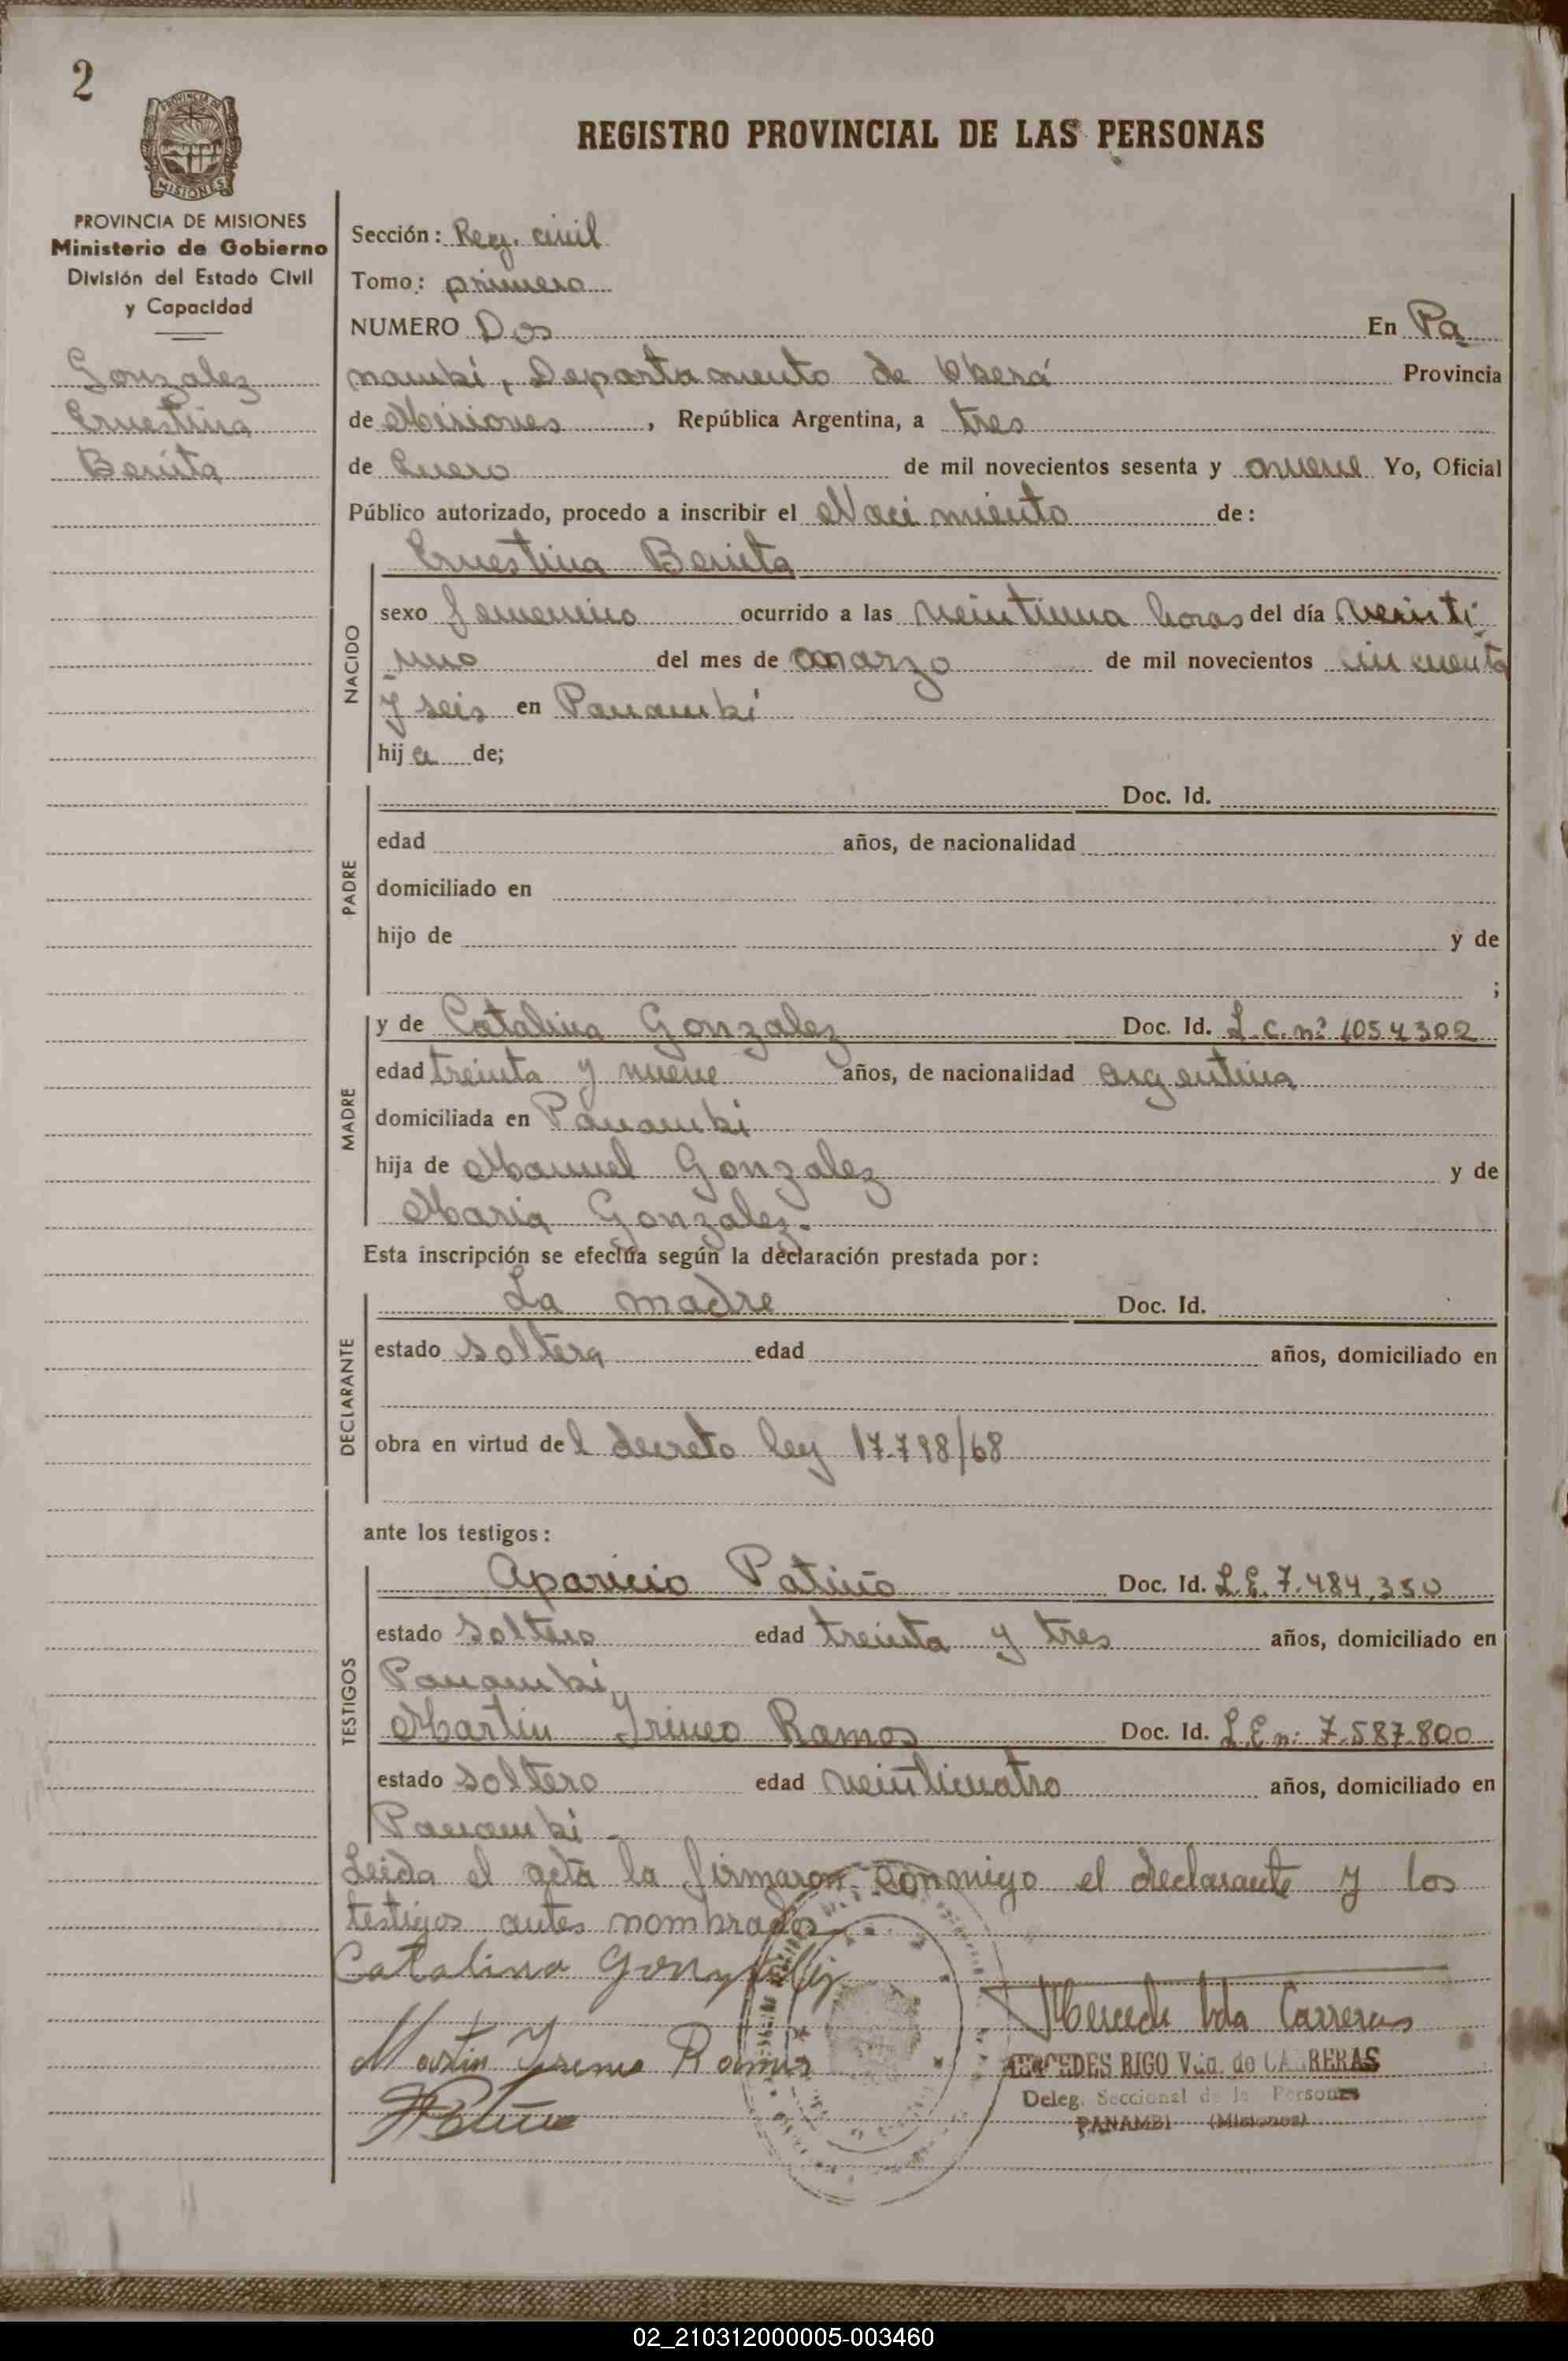 2
PROVINCIA DE
MISIONES
REGISTRO PROVINCIAL DE LAS PERSONAS
PROVINCIA DE MISIONES
Ministerio de Gobierno
División del Estado Civil
y Capacidad
Gonzalez
Ernestina
Benita
Sección: Reg. civil
Tomo: primero
NUMERO Dos En Pa
nambí, Departamento de Oberá Provincia
de Misiones, República Argentina, a tres
de Enero de mil novecientos sesenta y nueve Yo, Oficial
Público autorizado, procedo a inscribir el Nacimiento de:
Ernestina Benita
NACIDO
sexo femenino ocurrido a las veintiuna horas del día veinti
uno del mes de marzo de mil novecientos cincuenta
y seis en Panambí
hija de;
PADRE
Doc. Id.
edad años, de nacionalidad
domiciliado en
hijo de y de
;
MADRE
y de Catalina Gonzalez Doc. Id. L.C. nº 1054302
edad treinta y nueve años, de nacionalidad argentina
domiciliada en Panambí
hija de Manuel Gonzalez y de
Maria Gonzalez.
Esta inscripción se efectúa según la declaración prestada por:
DECLARANTE
La madre Doc. Id.
estado soltera edad años, domiciliado en
obra en virtud del decreto ley 17.798/68
ante los testigos:
TESTIGOS
Aparicio Patiño Doc. Id. L.E. 7.484.350
estado soltero edad treinta y tres años, domiciliado en
Panambí
Martin Irineo Ramos Doc. Id. L.E n: 7.587.800
estado soltero edad veinticuatro años, domiciliado en
Panambí -
Leída el acta la firmaron conmigo el declarante y los
testigos antes nombrados
Catalina Gonzalez
Mercede Vda Carreras
Martin Irineo Ramos
MERCEDES RIGO Vda. de CARRERAS
Deleg. Seccional de la Persones
Patiño
PANAMBI (Misiones)
02_210312000005-003460